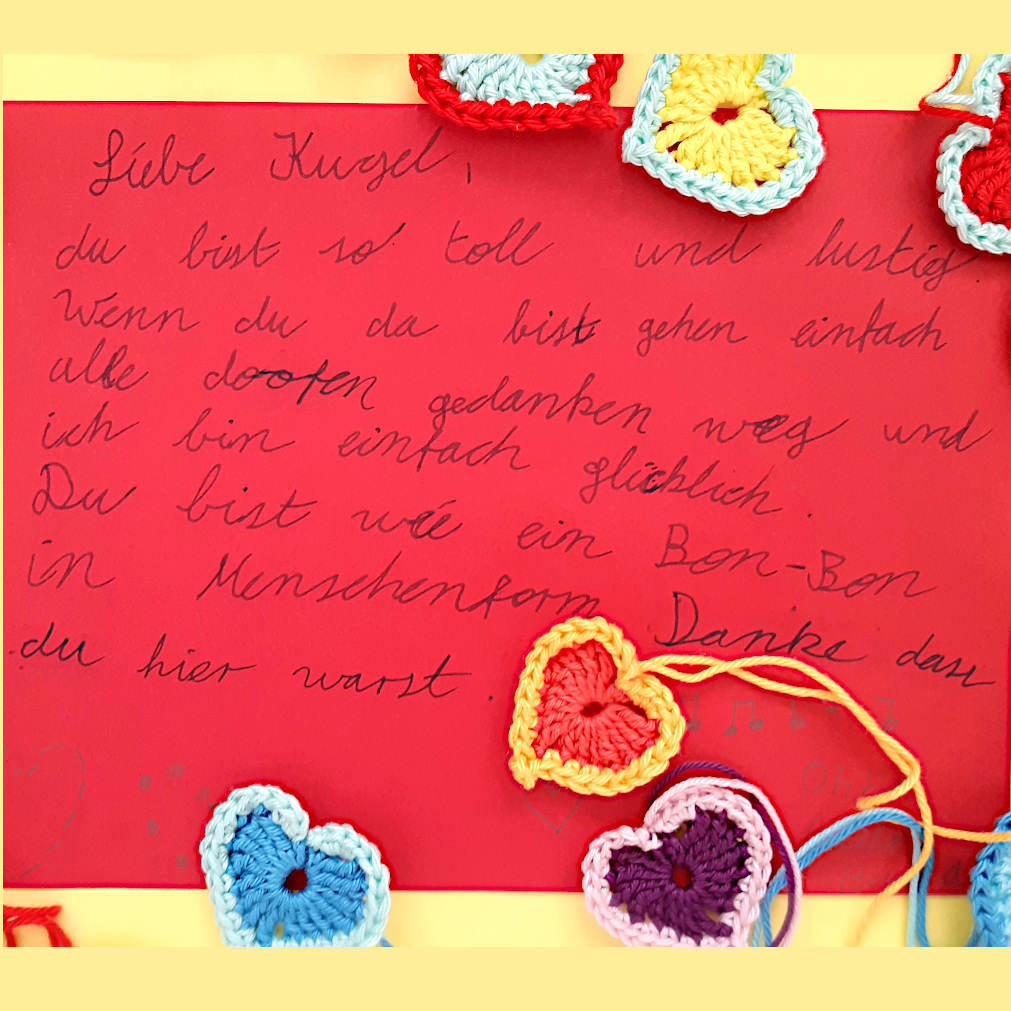 Liebe Kugel,
du bist so toll und lustig.
Wenn du da bist gehen einfach
alle doofen gedanken weg und
ich bin einfach glücklich.
Du bist wie ein Bon-Bon
in Menschenform Danke dass
du hier warst.